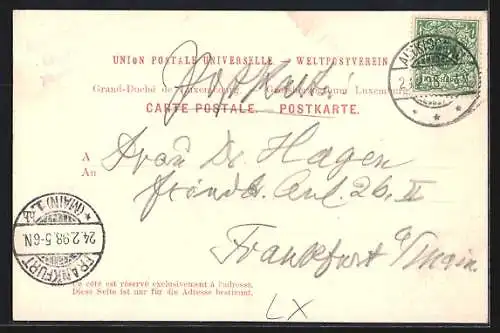 UNION POSTALE UNIVERSELLE — WELTPOSTVEREIN
Postkarte
Grand-Duché de Luxembourg. Grossherzogthum Luxemburg
CARTE POSTALE. POSTKARTE.
A Frau Dr. Hagen
An
26 II
Frankfurt a/Main
FRANKFURT
24.2.98.5-6N.
(MAIN) 1
Ce côté est réservé exclusivement à l'adresse.
Diese Seite ist nur für die Adresse bestimmt.
LX